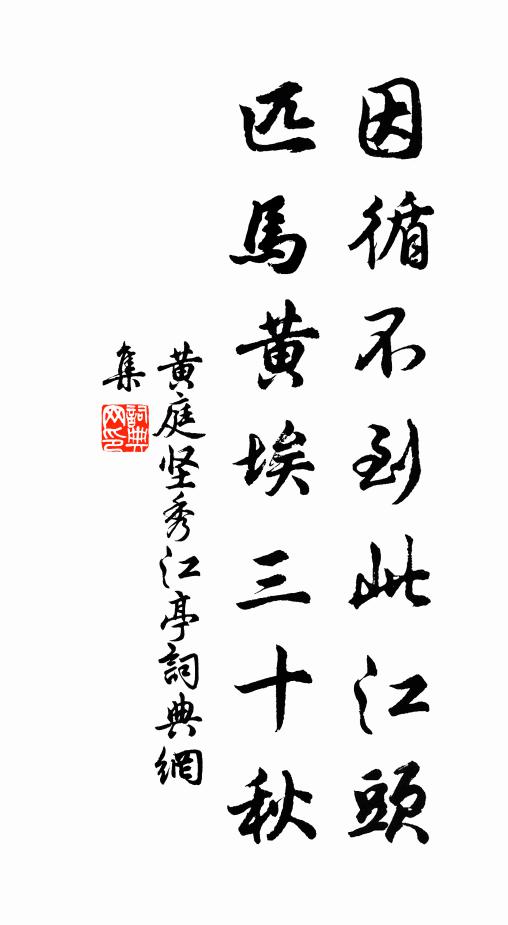 因循不到此江頭
匹馬黄埃三十秋
黄庭坚秀江亭詞典網
集
詞典
网印